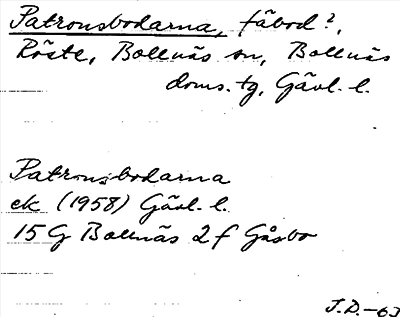 Patronsbodarna, fäbod?,
Röste, Bollnäs sn, Bollnäs
doms. tg, Gävl. l.
Patronsbodarna
ek (1958) Gävl. l.
15 G Bollnäs 2 f Gåsbo
J.D.-63